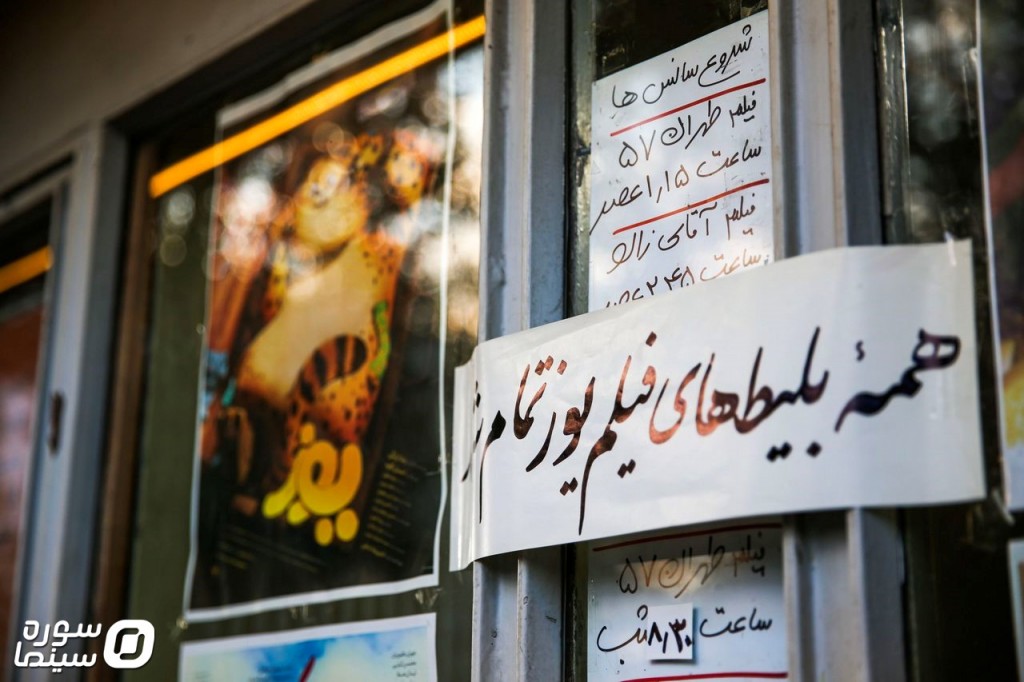 شروع سانس ها
فیلم طهران ۵۷
ساعت ۱۵ر۱ عصر
فیلم آقای زالو
ساعت
همهٔ بلیطهای فیلم یوز تمام
فیلم طهران ۵۷
ساعت ۸٫۳۰ شب
یوز
سوره
سینما